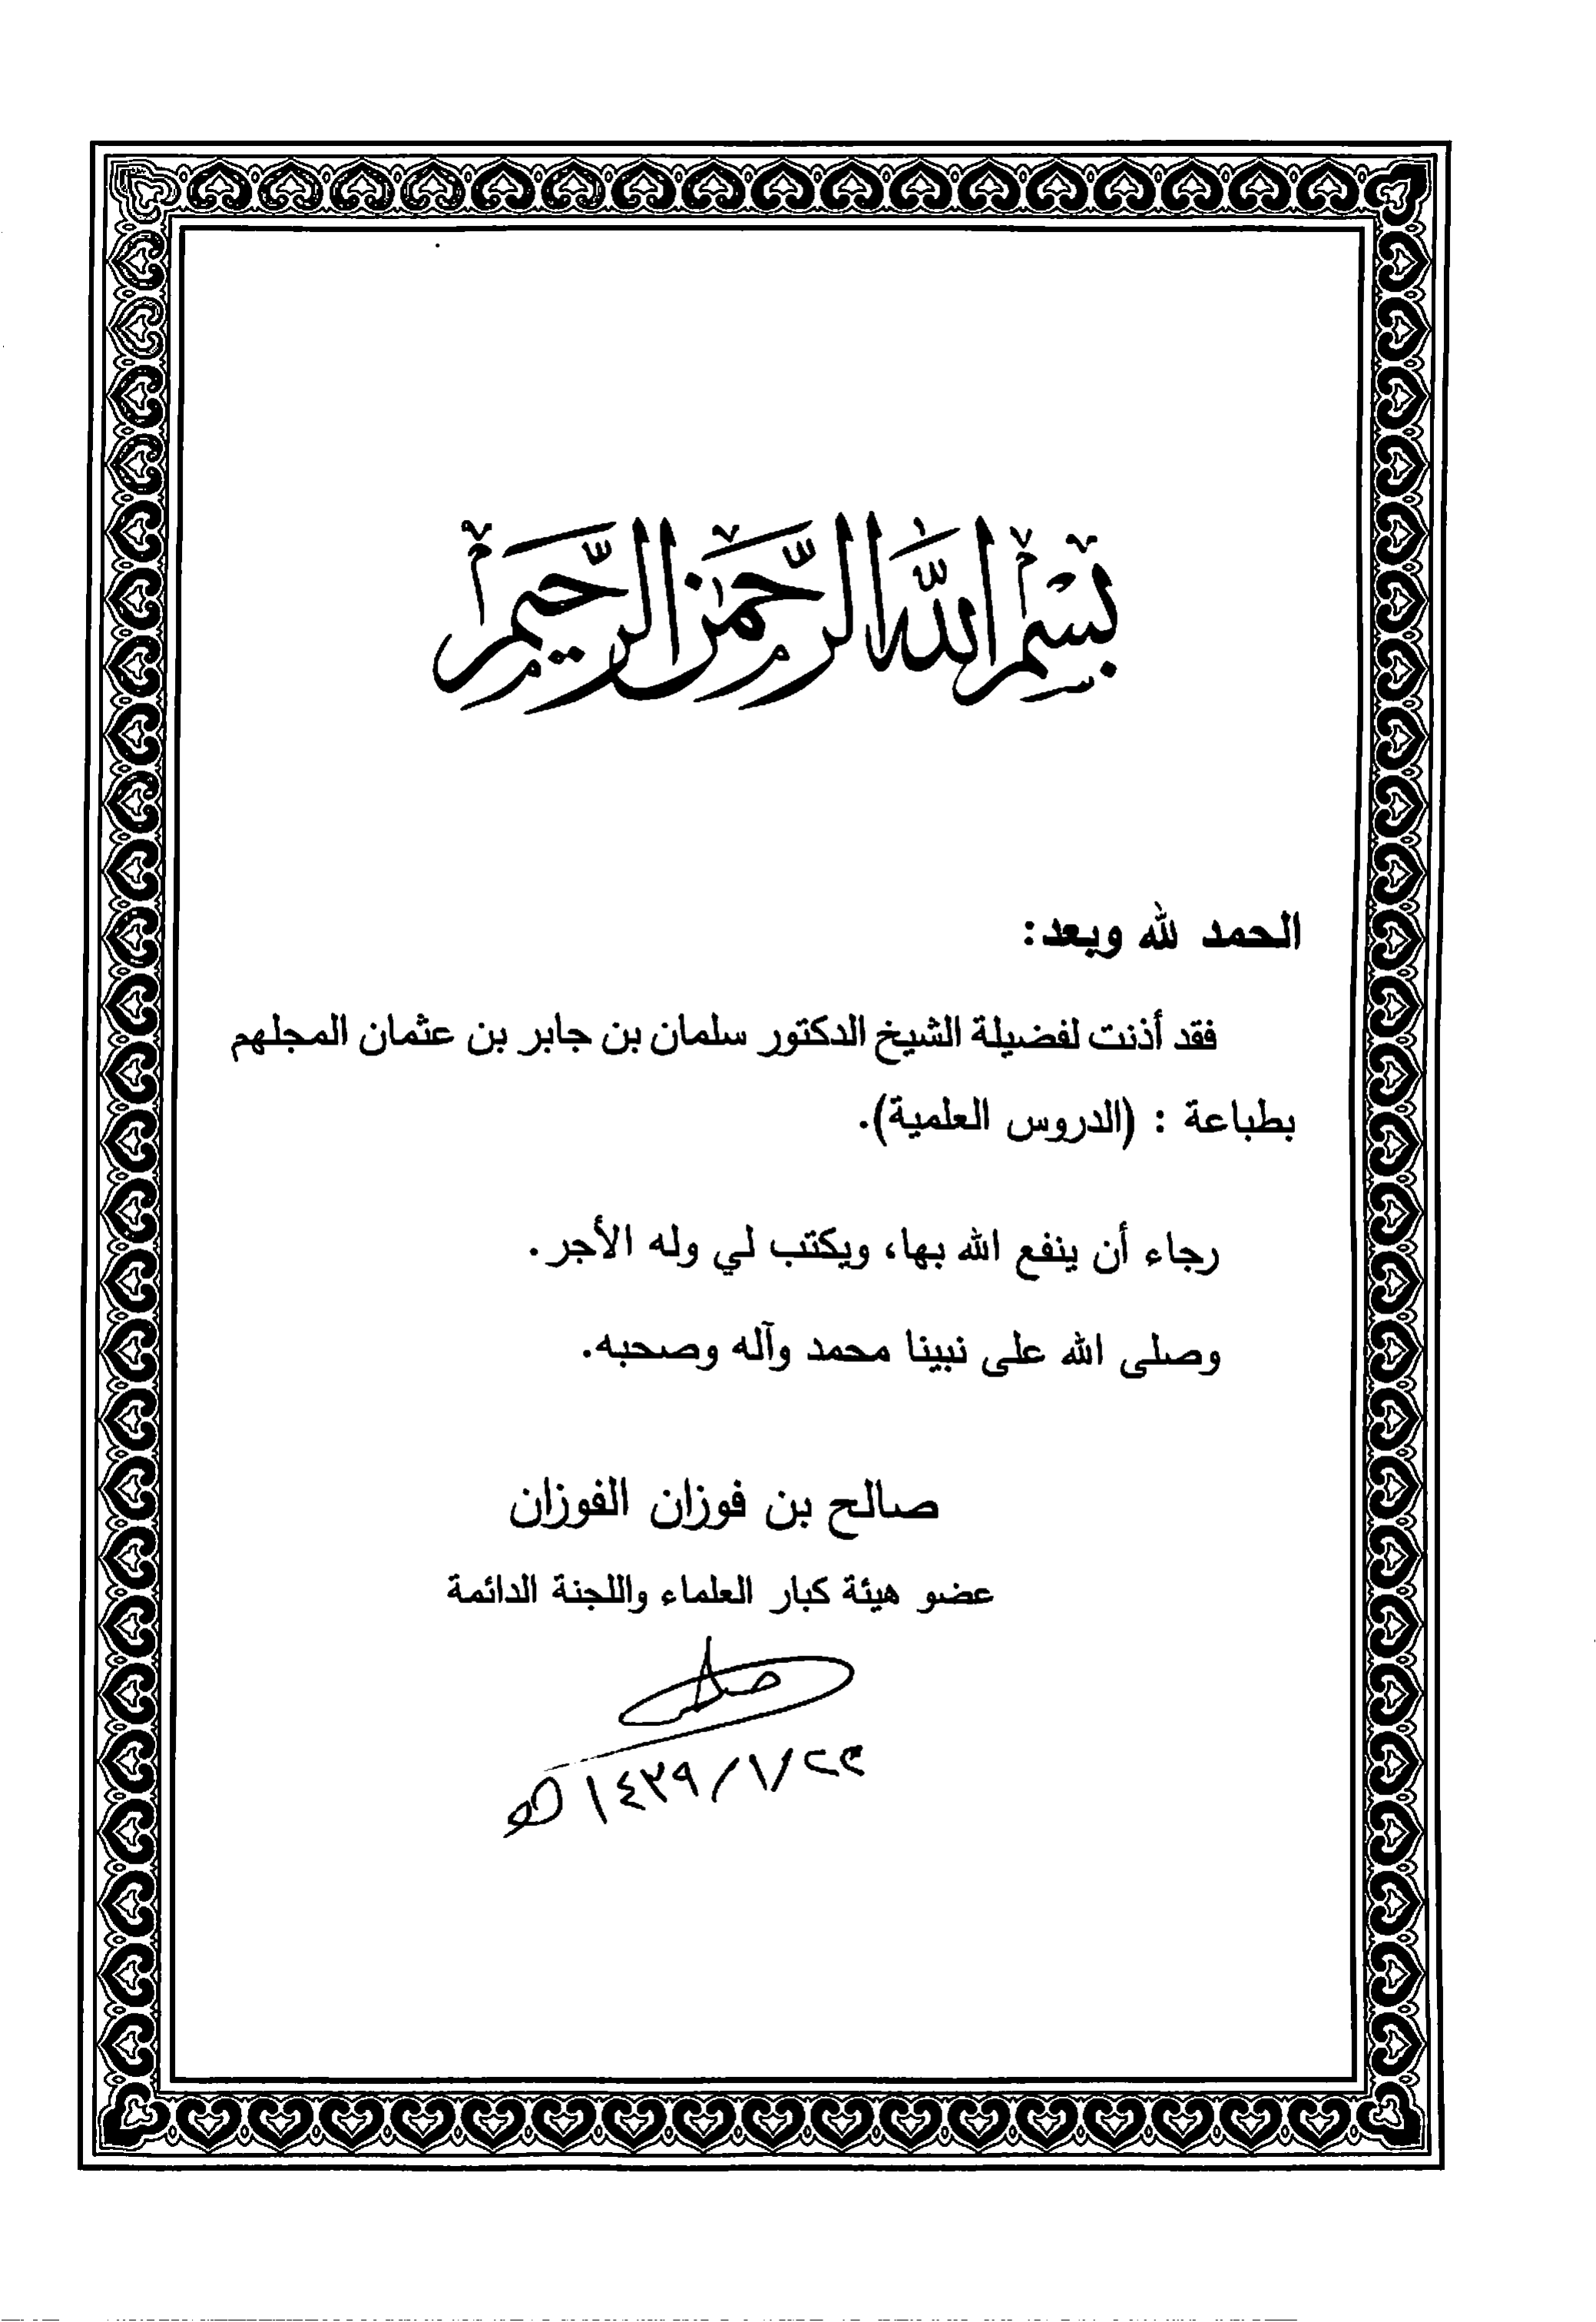 بِسْمِ اللَّهِ الرَّحْمَٰنِ الرَّحِيمِ
الحمد لله وبعد:
فقد أذنت لفضيلة الشيخ الدكتور سلمان بن جابر بن عثمان المجلهم
بطباعة : (الدروس العلمية).
رجاء أن ينفع الله بها، ويكتب لي وله الأجر.
وصلى الله على نبينا محمد وآله وصحبه.
صالح بن فوزان الفوزان
عضو هيئة كبار العلماء واللجنة الدائمة
١٤٣٩هـ